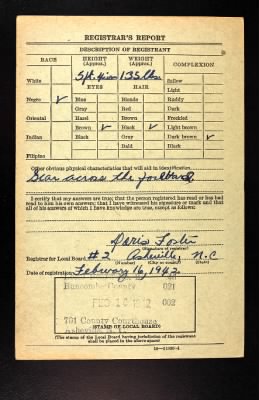 REGISTRAR'S REPORT
DESCRIPTION OF REGISTRANT
RACE HEIGHT (Approx.) WEIGHT (Approx.) COMPLEXION
White 5 ft. 135 lbs. Sallow
EYES HAIR Light
Negro ✓ Blue Blonde Ruddy
Gray Red Dark
Oriental Hazel Brown Freckled
Brown ✓ Black ✓ Light brown
Indian Black Gray Dark brown ✓
Bald Black
Filipino
Other obvious physical characteristics that will aid in identification
Scar across the forehead
I certify that my answers are true; that the person registered has read or has had read to him his own answers; that I have witnessed his signature or mark and that all of his answers of which I have knowledge are true, except as follows:
Doris Foster
(Signature of registrar)
Registrar for Local Board #2 Asheville, N.C
(Number) (City or county) (State)
Date of registration February 16, 1942
Buncombe County 021
FEB 16 1942 002
701 County Courthouse
Asheville
(STAMP OF LOCAL BOARD)
(The stamp of the Local Board having jurisdiction of the registrant shall be placed in the above space)